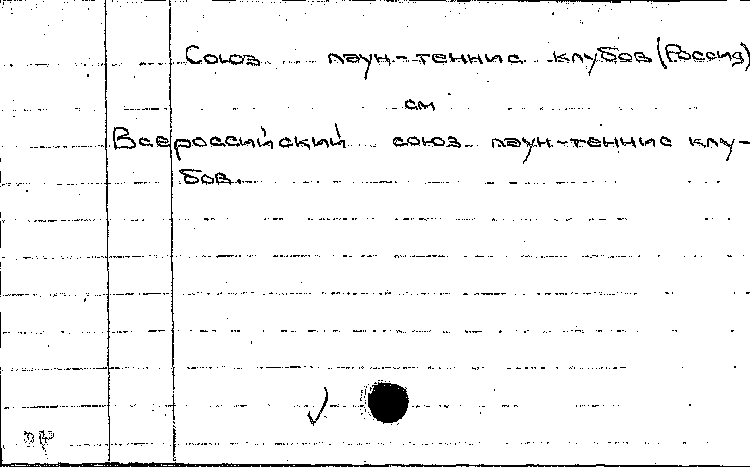 Союз лаун-теннис клубов (Россия)
см
Всероссийский союз лаун-теннис клу-
бов.